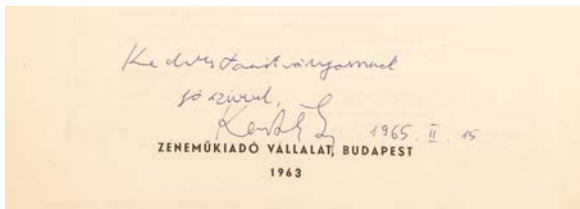 Kedves tanítványomnak
jó szívvel,
1965. II. 15
ZENEMŰKIADÓ VÁLLALAT, BUDAPEST
1963